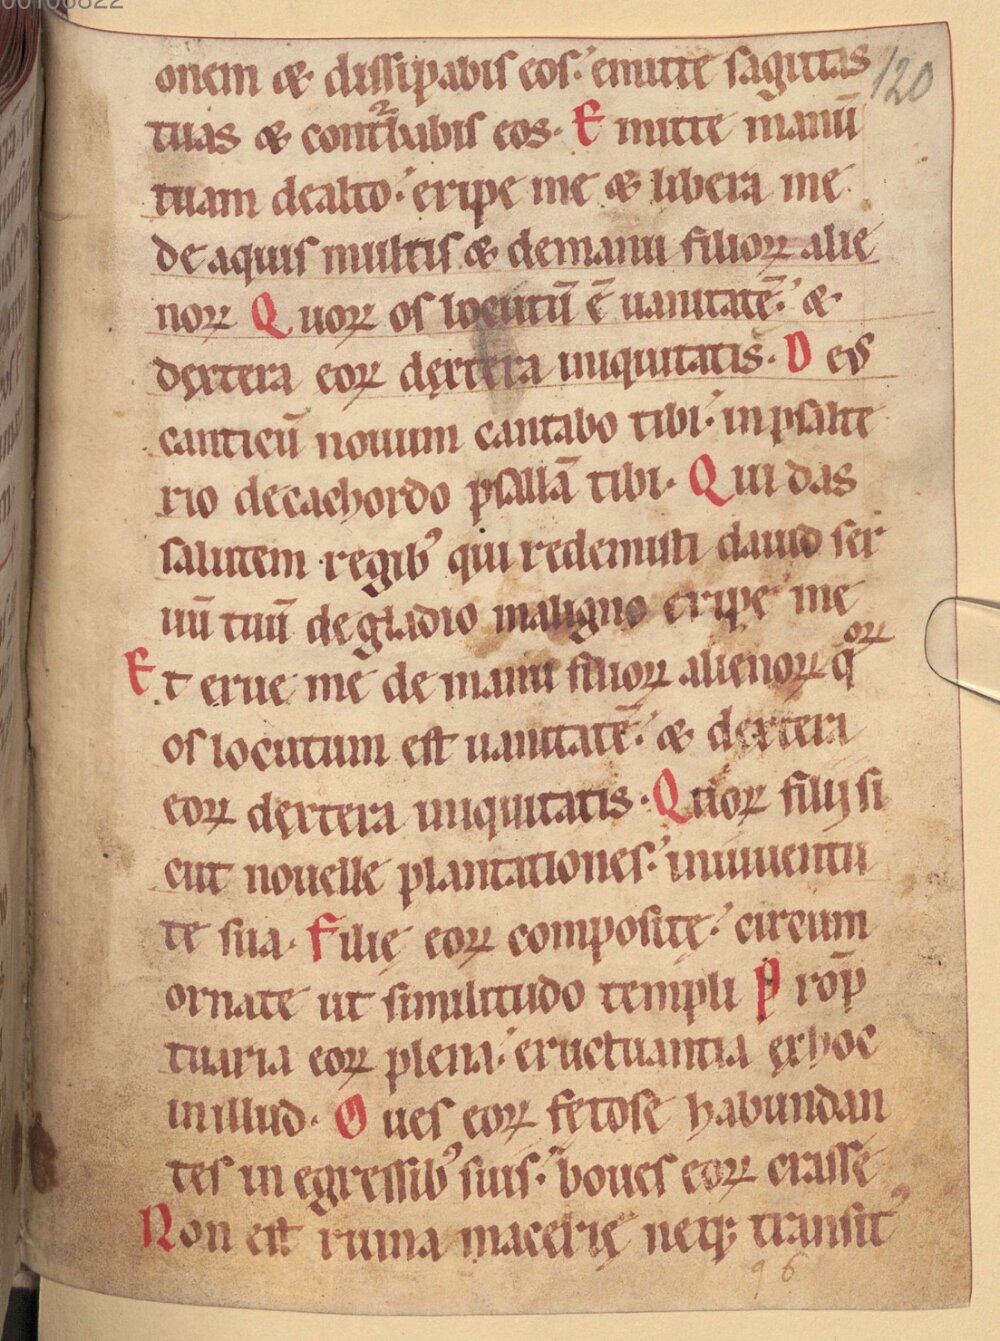 00106822
120
onem & dissipabis eos. emitte sagittas
tuas & conturbabis eos. Emitte manū
tuam dealto. eripe me & libera me
de aquis multis & demanu filioꝝ alie
noꝝ Quoꝝ os locutū ē uanitatē. &
dęxtera eoꝝ dęxtera iniquitatis. Deus
canticū nouum cantabo tibi. in psalte
rio decachordo psallā tibi. Qui das
salutem regibꝰ qui redemisti dauid ser
uū tuū degladio maligno eripe me
Et erue me de manu filioꝝ alienoꝝ qoꝝ
os locutum est uanitatē. & dextera
eoꝝ dęxtera iniquitatis. Quoꝝ filij si
cut nouelle plantationes. iniuuentu
te sua. Filię eoꝝ compositę. circum
ornate ut similitudo templi Prōp
tuaria eoꝝ plena. eructuantia ęxhoc
inillud. Oues eoꝝ fętose habundan
tes in egressibꝰ suis. boues eoꝝ crasse
Non est ruina macerię neqꝫ transitꝰ
96